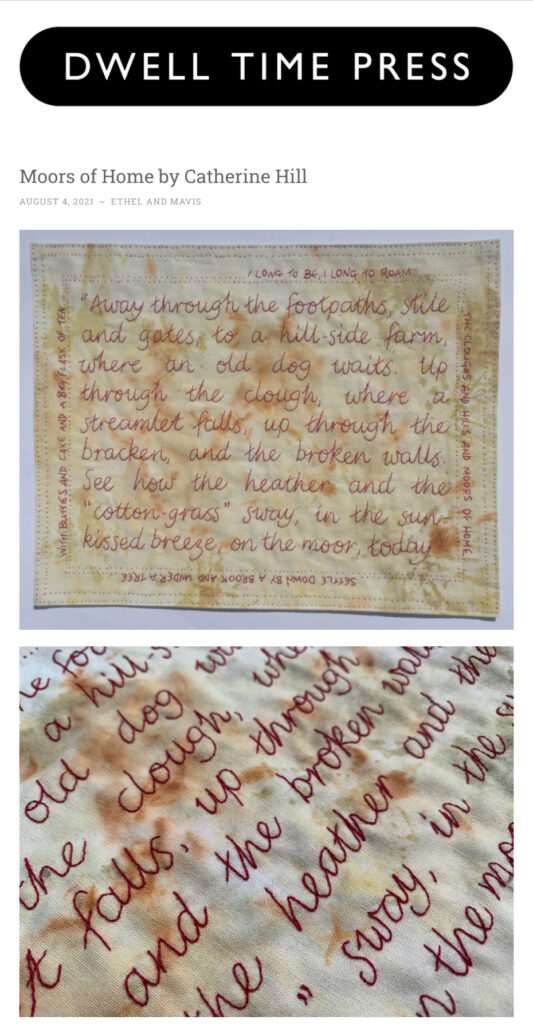 DWELL TIME PRESS
Moors of Home by Catherine Hill
AUGUST 4, 2021 ~ ETHEL AND MAVIS
I LONG TO BE, I LONG TO ROAM
"Away through the footpaths, stile
and gates, to a hill-side farm,
where an old dog waits. Up
through the clough, where a
streamlet falls, up through the
bracken, and the broken walls.
See how the heather and the
"cotton-grass" sway, in the sun-
kissed breeze, on the moor, today
THE CLOUGHS AND HILLS AND MOORS OF HOME.
SETTLE DOWN BY A BROOK AND UNDER A TREE
WITH BUTTIES AND CAKE AND A BIG FLASK OF TEA
he foo
a hill-s
old dog wa
the clough, whe
t falls, up through
and the broken wall
the heather and the
" sway, in the su
n the moo